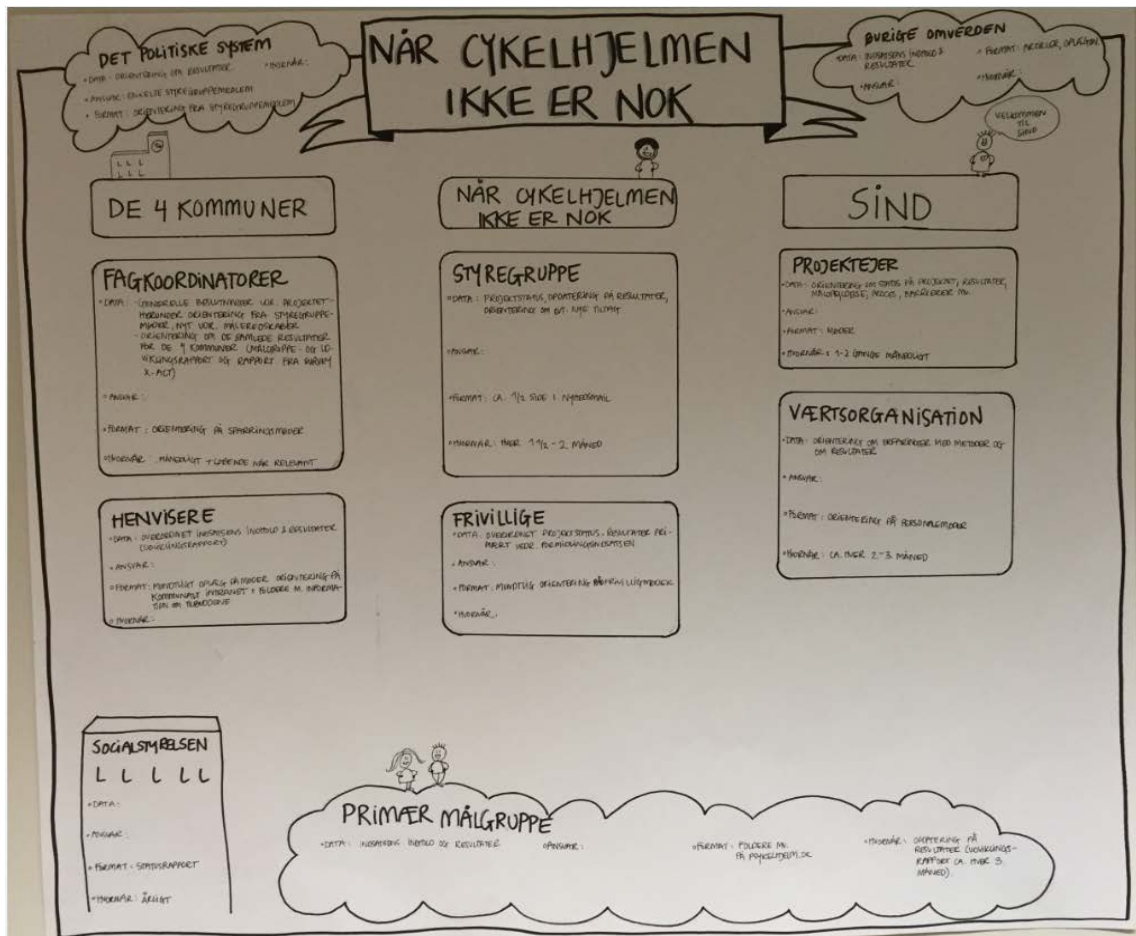 NÅR CYKELHJELMEN
IKKE ER NOK
DET POLITISKE SYSTEM
• DATA: ORIENTERING OM RESULTATER
• HVORNÅR:
• ANSVAR: ENKELTE STYREGRUPPEMEDLEM
• FORMAT: ORIENTERING FRA STYREGRUPPEMEDLEM
ØVRIGE OMVERDEN
• DATA: INDSATSENS INDHOLD &
RESULTATER
• FORMAT: ARTIKLER, OPLÆG
• ANSVAR:
• HVORNÅR:
VELKOMMEN
TIL
SIND
DE 4 KOMMUNER
FAGKOORDINATORER
• DATA: - GENERELLE BESLUTNINGER VDR. PROJEKTET -
HERUNDER ORIENTERING FRA STYREGRUPPE-
MØDER, NYT VDR. MÅLEREDSKABER
- ORIENTERING OM DE SAMLEDE RESULTATER
FOR DE 4 KOMMUNER (MÅLGRUPPE- OG UD-
VIKLINGSRAPPORT OG RAPPORT FRA
X-ACT)
• ANSVAR:
• FORMAT: ORIENTERING PÅ SPARRINGSMØDER
• HVORNÅR: MÅNEDLIGT + LØBENDE NÅR RELEVANT
HENVISERE
• DATA: OVERORDNET INDSATSENS INDHOLD & RESULTATER
(UDVIKLINGSRAPPORT)
• ANSVAR:
• FORMAT: MUNDTLIGT OPLÆG PÅ MØDER ORIENTERING PÅ
KOMMUNALT INTRANET + FOLDERE M. INFORMA-
TION OM TILBUDDENE
• HVORNÅR:
NÅR CYKELHJELMEN
IKKE ER NOK
STYREGRUPPE
• DATA: PROJEKTSTATUS, OPDATERING PÅ RESULTATER,
ORIENTERING OM EVT. NYE TILTAG
• ANSVAR:
• FORMAT: CA. 1/2 SIDE I NYHEDSMAIL
• HVORNÅR: HVER 1 1/2 - 2. MÅNED
FRIVILLIGE
• DATA: OVERORDNET PROJEKTSTATUS & RESULTATER PRI-
MÆRT VEDR. FORMIDLINGSINDSATSEN
• ANSVAR:
• FORMAT: MUNDTLIG ORIENTERING PÅ FRIVILLIGMØDER
• HVORNÅR:
SIND
PROJEKTEJER
• DATA: ORIENTERING OM STATUS PÅ PROJEKTET, RESULTATER,
MÅLOPFYLDELSE, PROCES, BARRIERER MV.
• ANSVAR:
• FORMAT: MØDER
• HVORNÅR: 1-2 GANGE MÅNEDLIGT
VÆRTSORGANISATION
• DATA: ORIENTERING OM ERFARINGER MED METODER OG
OM RESULTATER
• ANSVAR:
• FORMAT: ORIENTERING PÅ PERSONALEMØDER
• HVORNÅR: CA. HVER 2.-3. MÅNED
SOCIALSTYRELSEN
• DATA:
• ANSVAR:
• FORMAT: STATUSRAPPORT
• HVORNÅR: ÅRLIGT
PRIMÆR MÅLGRUPPE
• DATA: INDSATSENS INDHOLD OG RESULTATER
• ANSVAR:
• FORMAT: FOLDERE MV.
PÅ PSYKELHJELM.DK
• HVORNÅR: OPDATERING PÅ
RESULTATER (UDVIKLINGS-
RAPPORT CA. HVER 3.
MÅNED).